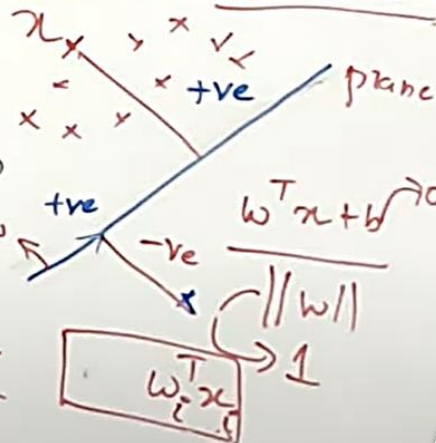 x
+ve
plane
+ve
-ve
wᵀx+b
||w||
→ 1
wᵢᵀxᵢ